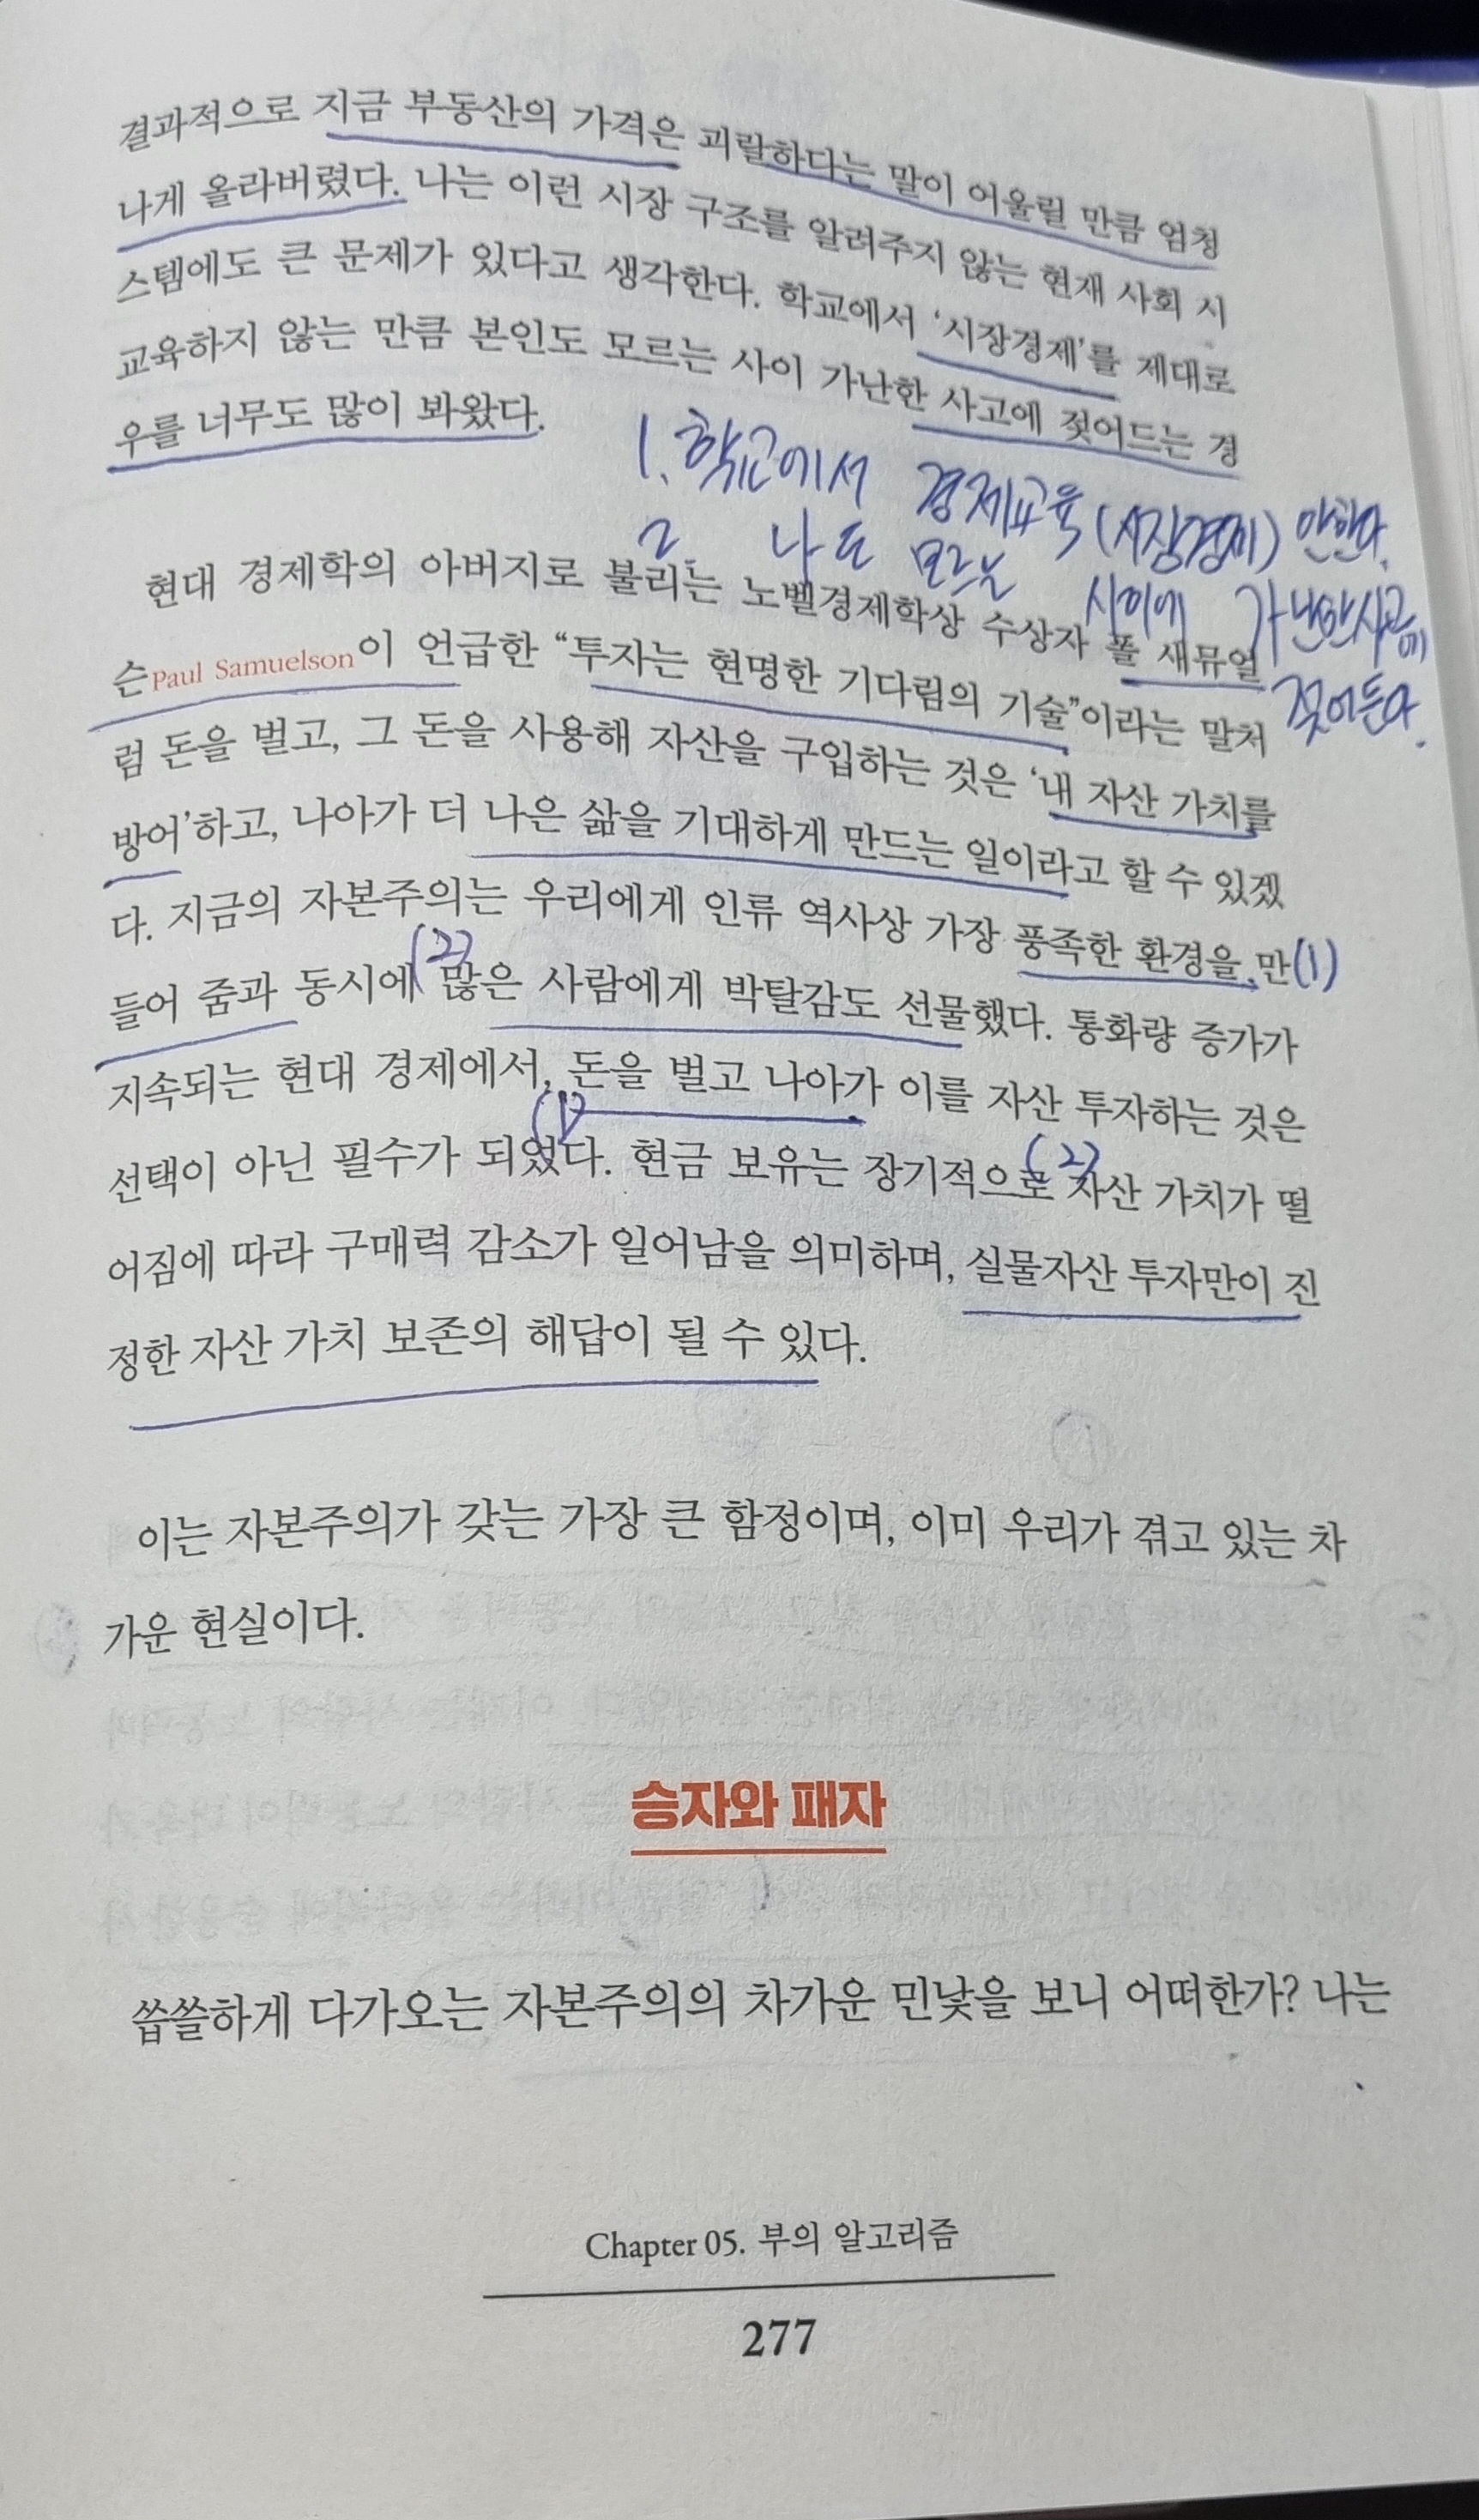 결과적으로 지금 부동산의 가격은 괴랄하다는 말이 어울릴 만큼 엄청
나게 올라버렸다. 나는 이런 시장 구조를 알려주지 않는 현재 사회 시
스템에도 큰 문제가 있다고 생각한다. 학교에서 ‘시장경제’를 제대로
교육하지 않는 만큼 본인도 모르는 사이 가난한 사고에 젖어드는 경
우를 너무도 많이 봐왔다.
1. 학교에서 경제교육 (시장경제) 안한다.
2. 나도 모르는 사이에 가난한 사고에
젖어든다.
현대 경제학의 아버지로 불리는 노벨경제학상 수상자 폴 새뮤얼
슨Paul Samuelson이 언급한 “투자는 현명한 기다림의 기술”이라는 말처
럼 돈을 벌고, 그 돈을 사용해 자산을 구입하는 것은 ‘내 자산 가치를
방어’하고, 나아가 더 나은 삶을 기대하게 만드는 일이라고 할 수 있겠
다. 지금의 자본주의는 우리에게 인류 역사상 가장 풍족한 환경을 만 (1)
들어 줌과 동시에 (2) 많은 사람에게 박탈감도 선물했다. 통화량 증가가
지속되는 현대 경제에서, 돈을 벌고 나아가 이를 자산 투자하는 것은
(1) (2)
선택이 아닌 필수가 되었다. 현금 보유는 장기적으로 자산 가치가 떨
어짐에 따라 구매력 감소가 일어남을 의미하며, 실물자산 투자만이 진
정한 자산 가치 보존의 해답이 될 수 있다.
이는 자본주의가 갖는 가장 큰 함정이며, 이미 우리가 겪고 있는 차
가운 현실이다.
승자와 패자
씁쓸하게 다가오는 자본주의의 차가운 민낯을 보니 어떠한가? 나는
Chapter 05. 부의 알고리즘
277